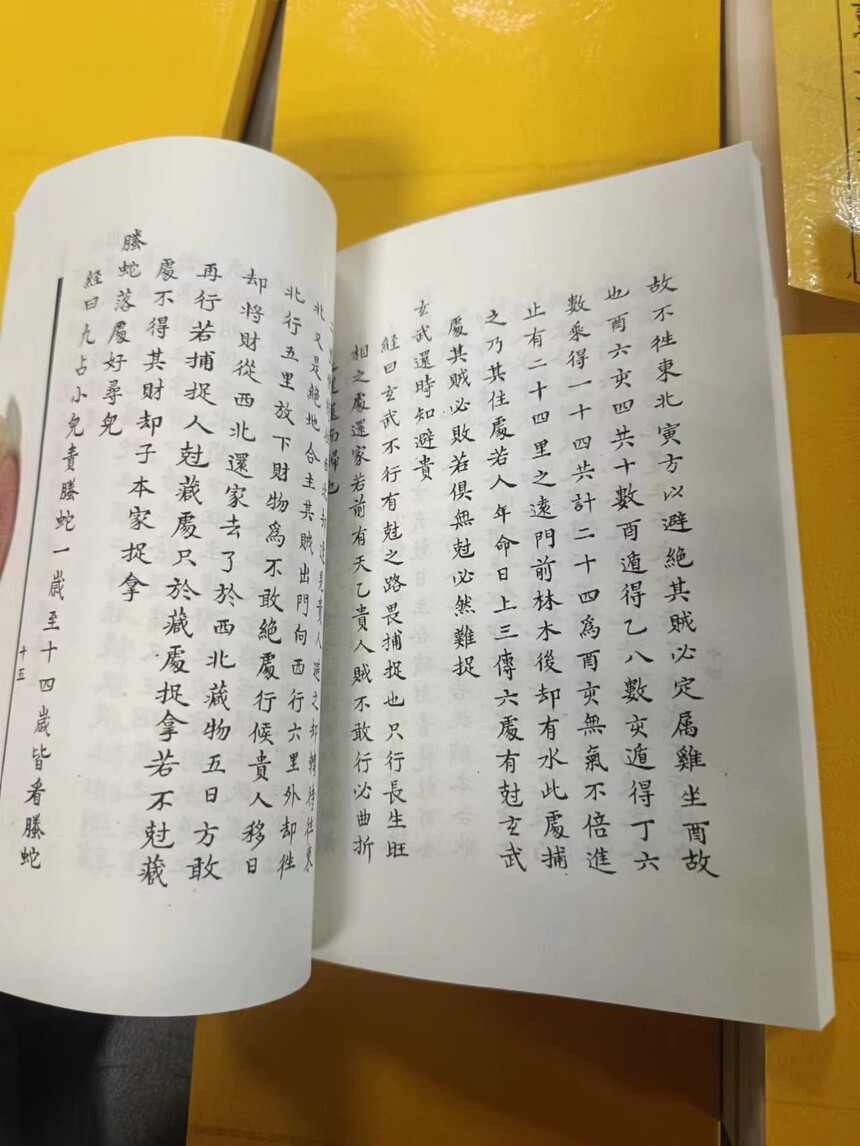 故不徃東北寅方以避絶其賊必定属雞坐酉故
也酉六亥四共十數酉遁得乙八數亥遁得丁六
數乘得一十四共計二十四爲酉亥無氣不倍進
止有二十四里之遠門前林木後却有水此處捕
之乃其住處若人年命日上三傳六處有尅玄武
處其賊必敗若俱無尅必然難捉
玄武還時知避貴
經曰玄武不行有尅之路畏捕捉也只行長生旺
相之處還家若前有天乙貴人賊不敢行必曲折
而歸也
北又是絶地合主其賊出門向西行六里外却徃
北行五里放下財物爲不敢絶處行候貴人移日
却將財從西北還家去了於西北藏物五日方敢
再行若捕捉人尅藏處只於藏處捉拿若不尅藏
處不得其財却子本家捉拿
螣蛇落處好尋兒
経曰九占小兒責螣蛇一歲至十四歲皆看螣蛇
十五